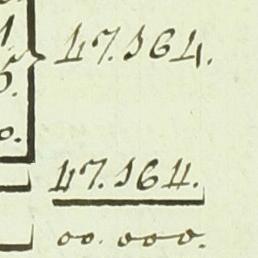 47.364.
47.364.
00.000.